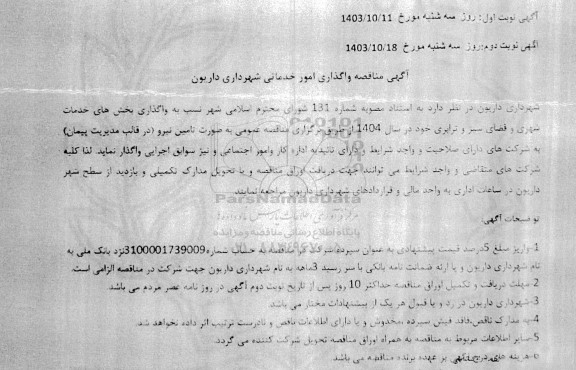 آگهی نوبت اول: روز سه شنبه مورخ 1403/10/11
آگهی نوبت دوم:روز سه شنبه مورخ 1403/10/18
آگهی مناقصه واگذاری امور خدماتی شهرداری داریون
شهرداری داریون در نظر دارد به استناد مصوبه شماره 131 شورای محترم اسلامی شهر نسبت به واگذاری بخش های خدمات
شهری و فضای سبز و ترابری خود در سال 1404 از طریق برگزاری مناقصه عمومی به صورت تامین نیرو (در قالب مدیریت پیمان)
به شرکت های دارای صلاحیت و واجد شرایط و دارای تائیدیه اداره کار وامور اجتماعی و نیز سوابق اجرایی واگذار نماید. لذا کلیه
شرکت های متقاضی و واجد شرایط می توانند جهت دریافت اوراق مناقصه و یا تحویل مدارک تکمیلی و بازدید از سطح شهر
داریون در ساعات اداری به واحد مالی و قراردادهای شهرداری داریون مراجعه نمایند.
ParsNamadData
پایگاه اطلاع رسانی مناقصه و مزایده
توضیحات آگهی:
1-واریز مبلغ 5درصد قیمت پیشنهادی به عنوان سپرده شرکت در مناقصه به حساب شماره3100001739009نزد بانک ملی به
نام شهرداری داریون و یا ارئه ضمانت نامه بانکی با سر رسید 3ماهه به نام شهرداری داریون جهت شرکت در مناقصه الزامی است.
2-مهلت دریافت و تکمیل اوراق مناقصه حداکثر 10 روز پس از تاریخ نوبت دوم آگهی در روز نامه عصر مردم می باشد.
3-شهرداری داریون در رد و یا قبول هر یک از پیشنهادات مختار می باشد.
4-به مدارک ناقص،فاقد فیش سپرده ،مخدوش و یا دارای اطلاعات ناقص و نادرست ترتیب اثر داده نخواهد شد.
5-سایر اطلاعات مربوط به مناقصه به همراه اوراق مناقصه تحویل شرکت کننده می گردد.
6-هزینه های درج آگهی بر عهده برنده مناقصه می باشد.